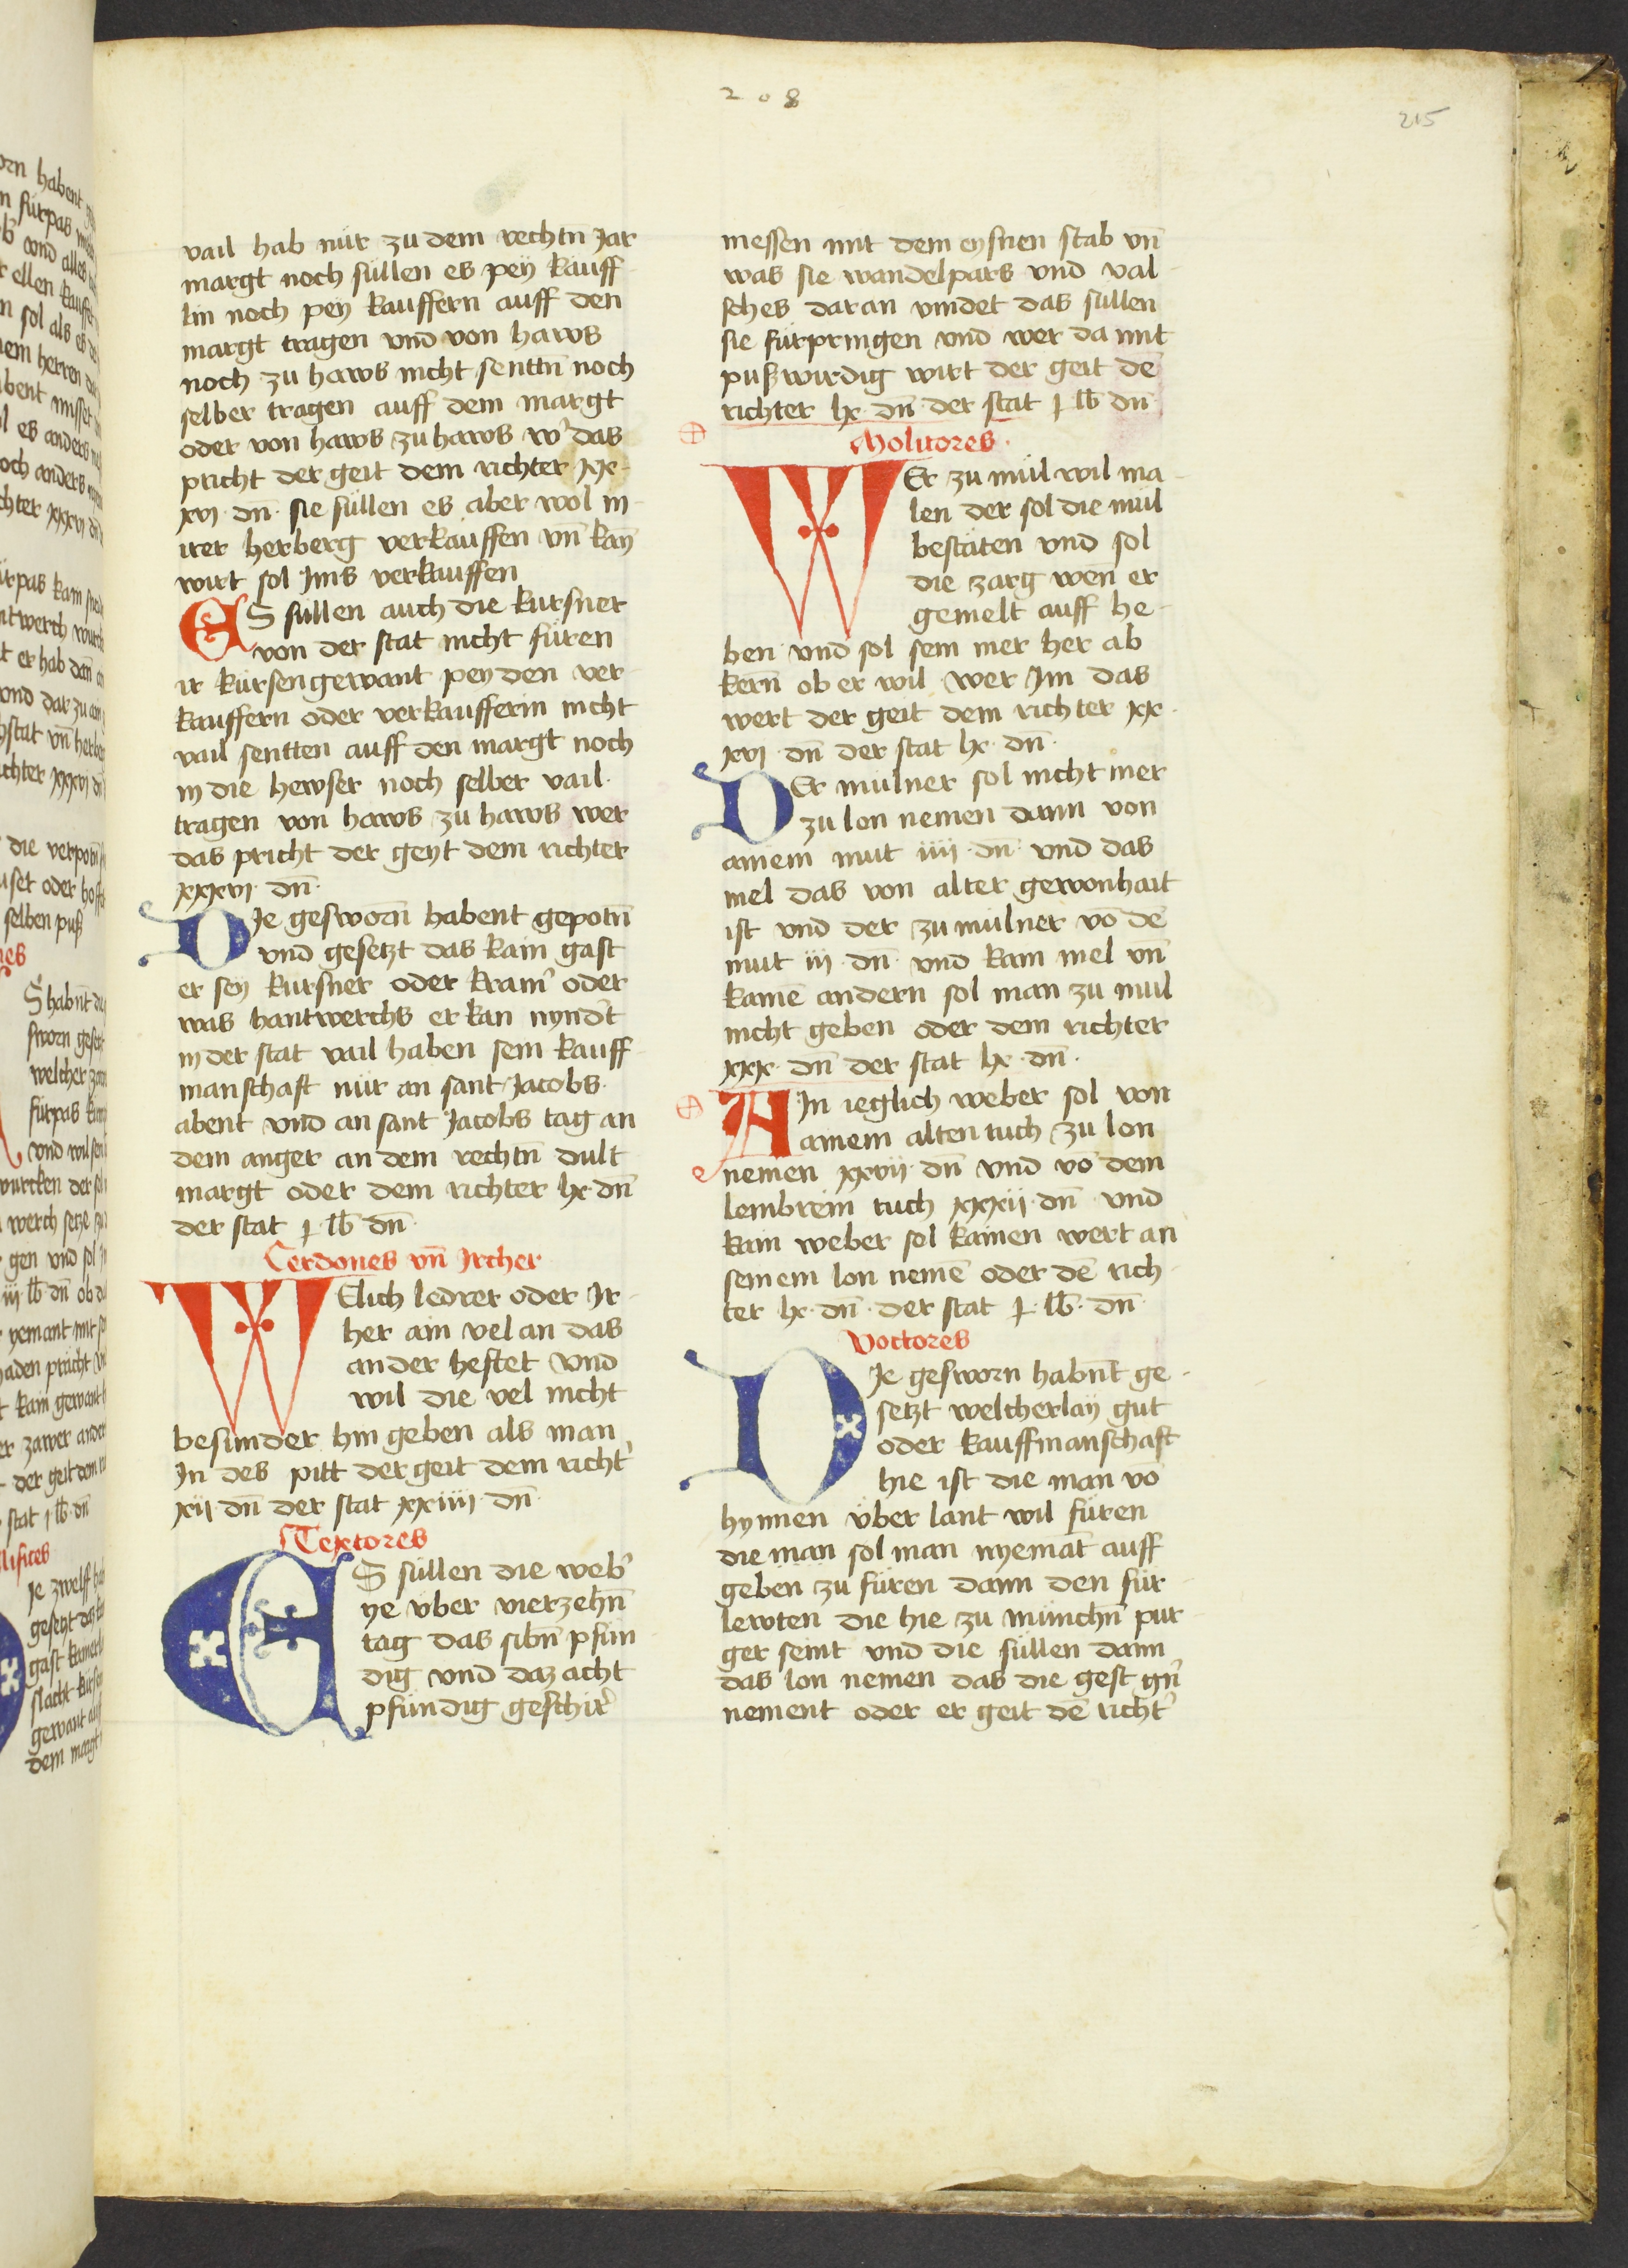 208
215
vail hab nür zu dem rechtn̄ Jar
margt noch süllen es peÿ kauff
lin noch peÿ kauffern auff den
margt tragen vnd von haws
noch zu haws nicht senttn̄ noch
selber tragen auff dem margt
oder von haws zu haws w᾽ das
pricht der geit dem richter xx
xvj dn̄ sie süllen es aber wol in
irer herberg verkauffen vn̄ kain̄
wirt sol Jms verkauffen
ES süllen auch die kursner
von der stat nicht füren
ir kürsengewant pey den ver
kauffern oder verkaufferin nicht
vail sentten auff den margt noch
in die hewser noch selber vail
tragen von haws zu haws wer
das pricht der geyt dem richter
xxxvj dn̄
DJe gesworn̄ habent gepotn̄
vnd gesetzt das kain gast
er seÿ kursner oder kram᾽ oder
was hantwerchs er kan nynd᾽t
in der stat vail haben sein kauff
manschaft nür an sant Jacobs
abent vnd an sant Jacobs tag an
dem anger an dem rechtn̄ dult
margt oder dem richter lx dn̄
der stat j lb dn̄
Cerdones vn̄ Jrcher
WElich ledrer oder Jr
her ain vel an das
ander heftet vnd
wil die vel nicht
besunder hin geben als man
Jn des pitt der geit dem richt᾽
xij dn̄ der stat xxiiij dn̄
Textores
ES süllen die web᾽
ye vber vierzehn̄
tag das sibn̄ pfün
dig vnd daz acht
pfündig geschir᾽
messen mit dem eysnen stab vn̄
was sie wandelpars vnd val
sches daran vindet das süllen
sie fürpringen vnd wer da mit
pußwirdig wirt der geit dē
richter lx dn̄ der stat j lb dn̄
Molitores
WEr zu mül wil ma
len der sol die mül
bestäten vnd sol
die zarg wen er
gemelt auff he
ben vnd sol sein mer her ab
kern̄ ob er wil wer Jm das
wert der geit dem richter xx
xvj dn̄ der stat lx dn̄
DEr mülner sol nicht mer
zu lon nemen dann von
ainem mut iiij dn̄ vnd das
mel das von alter gewonhait
ist vnd der zu mülner vō dē
mut iij dn̄ vnd kain mel vn̄
kainē andern sol man zu mül
nicht geben oder dem richter
xxx dn̄ der stat lx dn̄
AIn ieglich weber sol von
ainem alten tuch zu lon
nemen xxvij dn̄ vnd vō dem
lembrein tuch xxxij dn̄ vnd
kain weber sol kainen wert an
seinem lon nemē oder dē rich
ter lx dn̄ der stat j lb dn̄
Voctores
DJe gesworn habn̄t ge
setzt welcherlaÿ gut
oder kauffmanschaft
hie ist die man vō
hynnen vber lant wil füren
die man sol man nyemāt auff
geben zu füren dann den für
lewten die hie zu münchn̄ pur
ger seint vnd die süllen dann
das lon nemen das die gest gn̄
nement oder er geit dē richt᾽